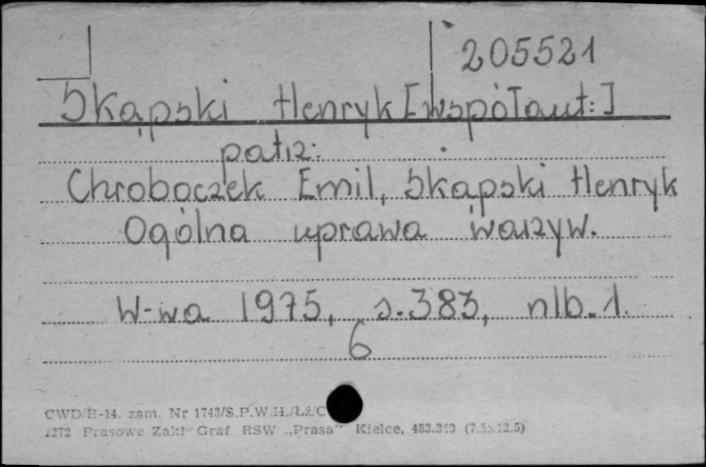 205521
Skąpski Henryk [współaut:]
patrz:
Chroboczek Emil, Skąpski Henryk
Ogólna uprawa warzyw.
W-wa 1975, s. 383, nlb. 1.
6
CWD/B-14. zam. Nr 1743/S.P.W.H./Łź/C
1272 Prasowe Zakł Graf RSW „Prasa" Kielce, 483.310 (7.5x12.5)